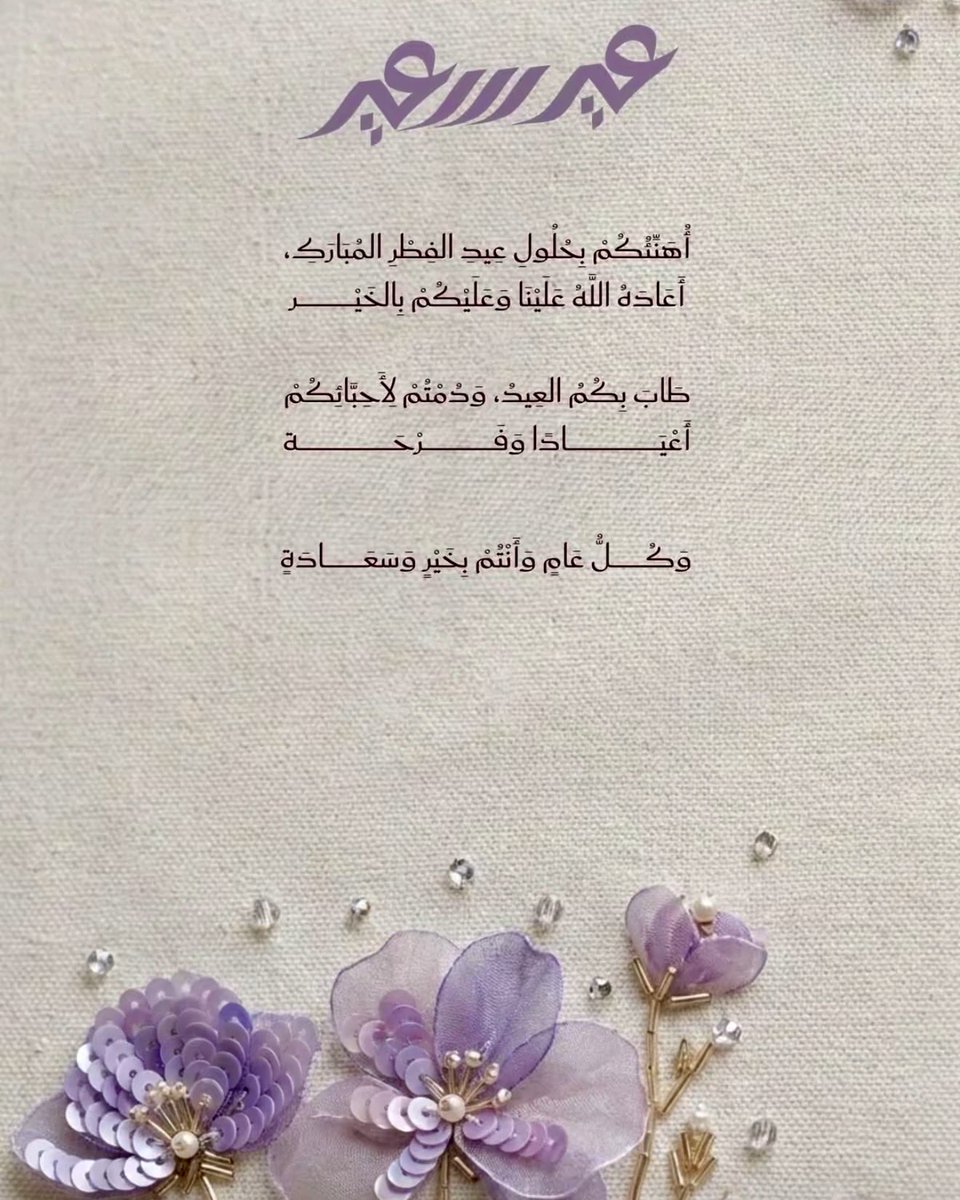 عيد سعيد
أُهَنِّئُكُمْ بِحُلُولِ عِيدِ الفِطْرِ المُبَارَكِ،
أَعَادَهُ اللَّهُ عَلَيْنَا وَعَلَيْكُمْ بِالخَيْـــــر
طَابَ بِكُمُ العِيدُ، وَدُمْتُمْ لِأَحِبَّائِكُمْ
أَعْيَـــــــادًا وَفَـــــــرْحَـــــــة
وَكُـــلُّ عَامٍ وَأَنْتُمْ بِخَيْرٍ وَسَعَـــادَةٍ